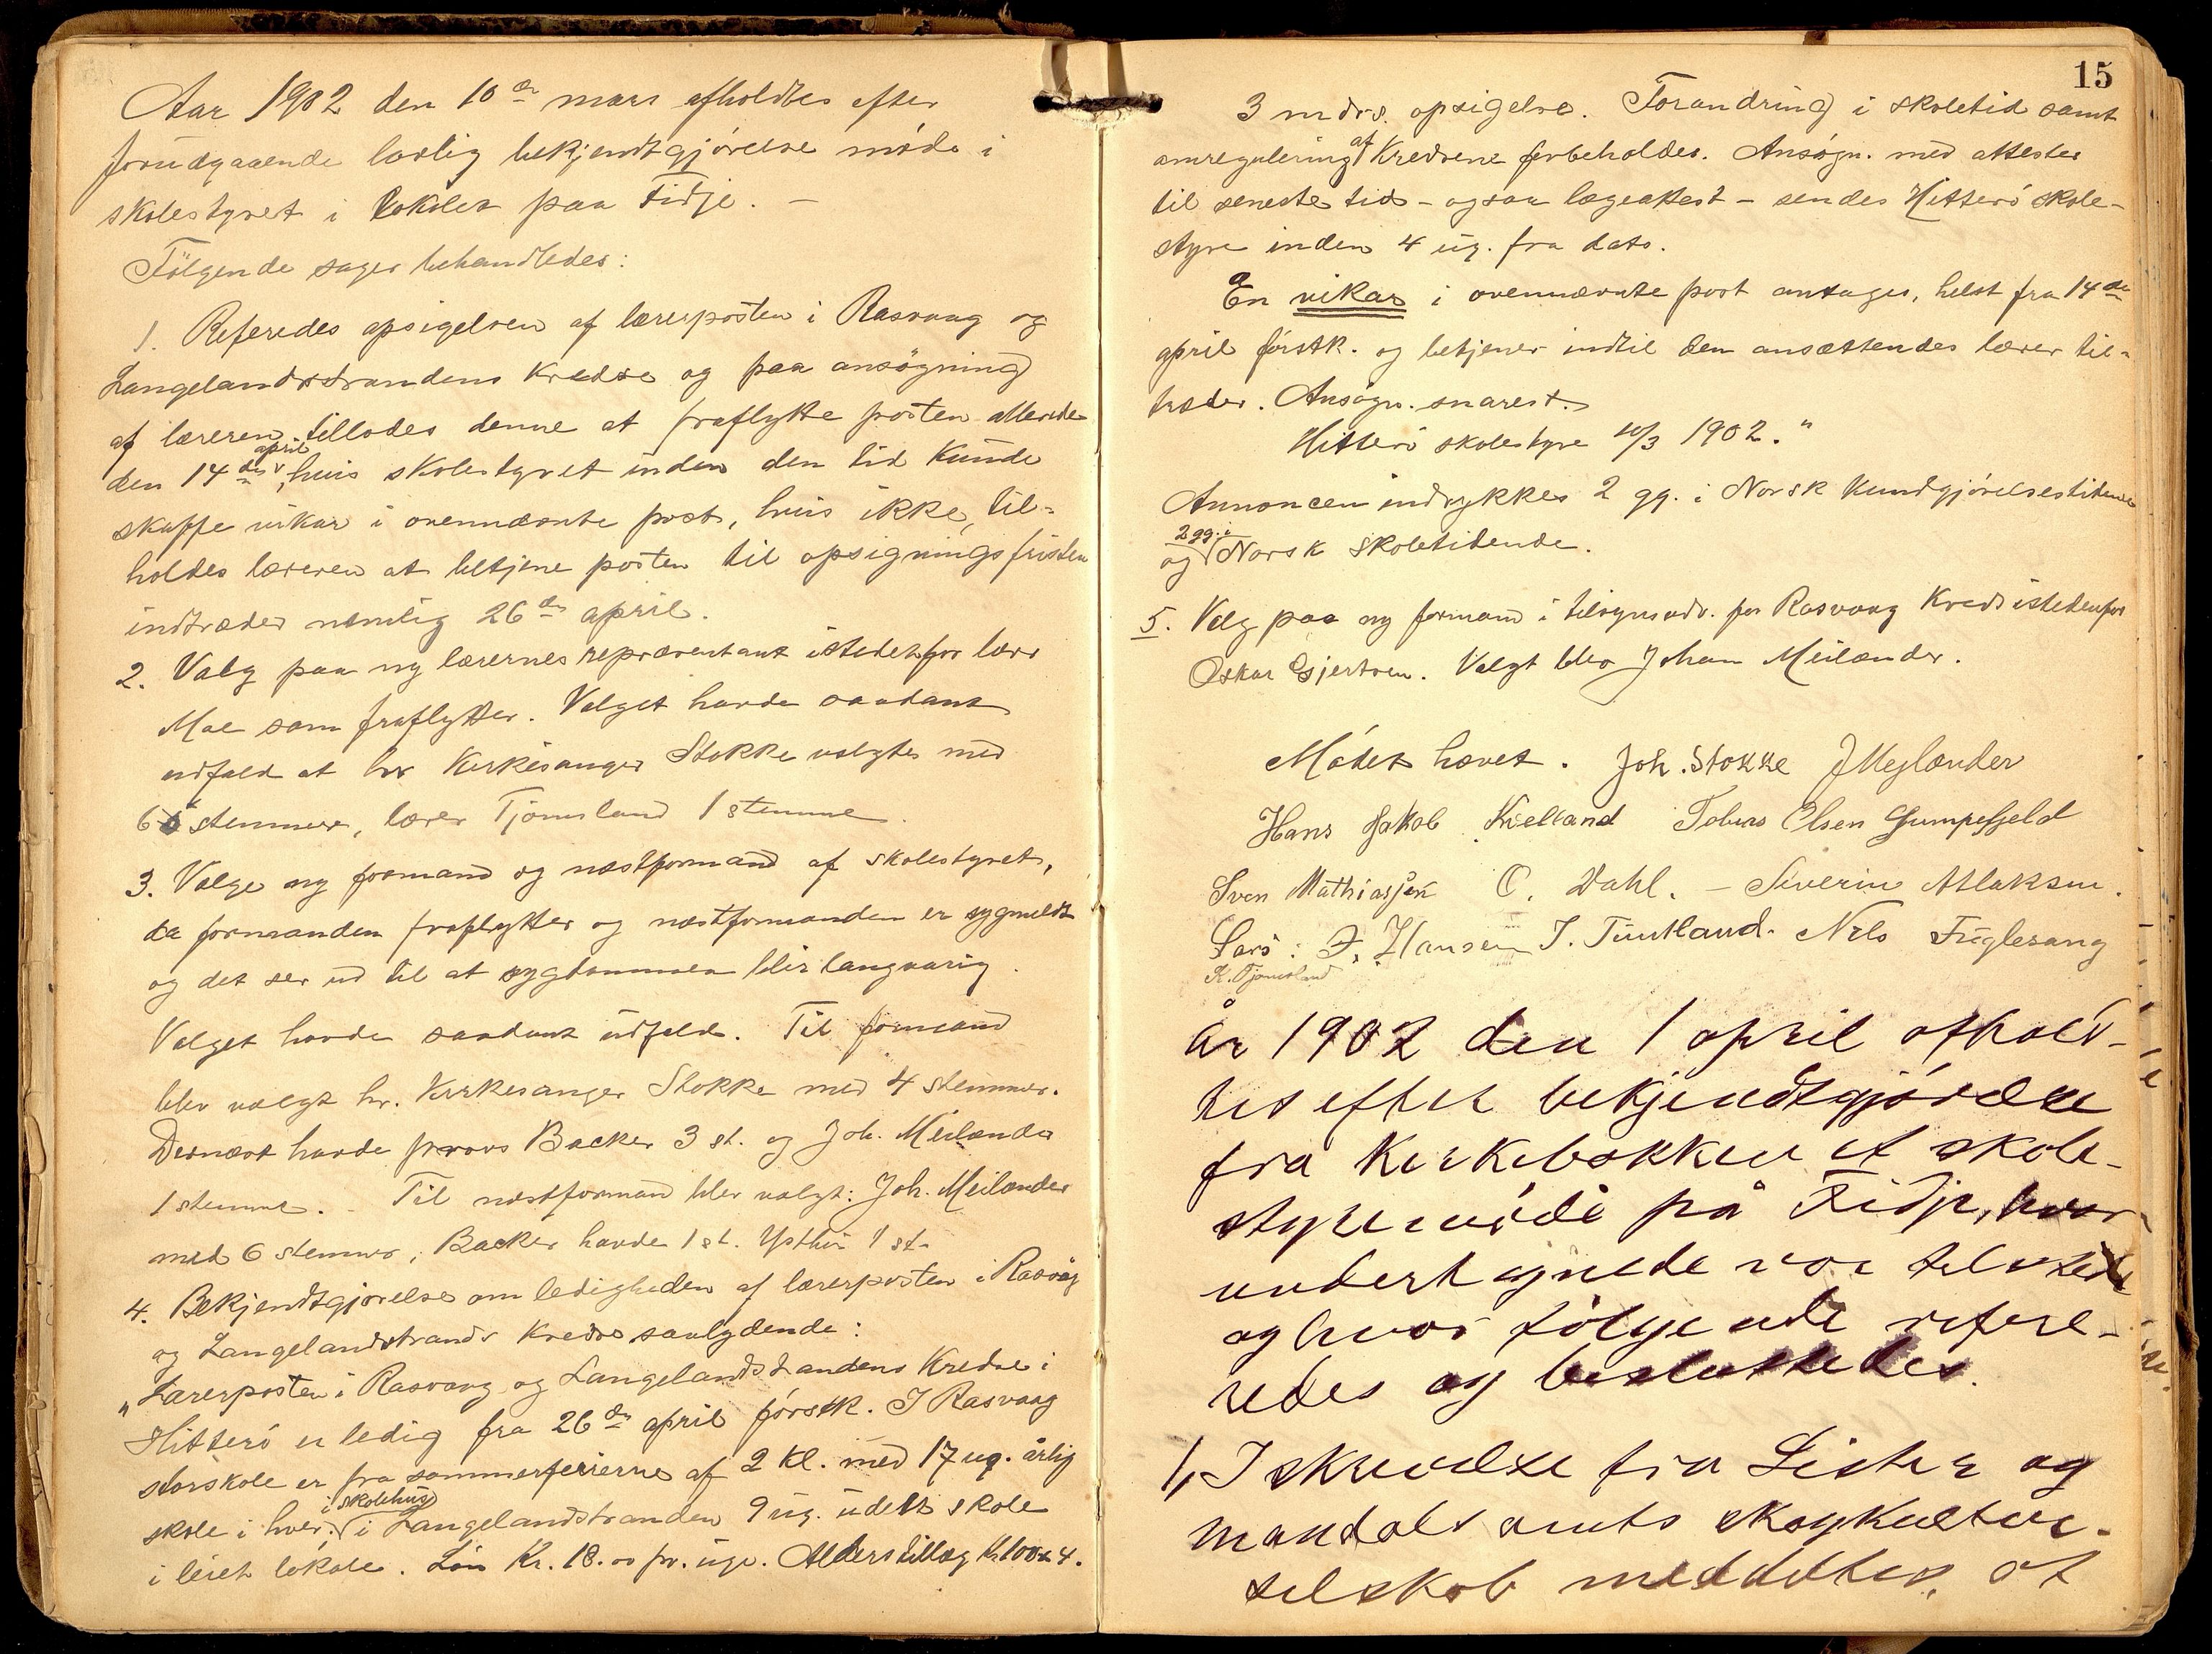 Aar 1902 den 10de mars afholdtes efter
forudgaaende lovlig bekjendtgjørelse møde i
skolestyret i lokalet paa Fidje. –
Følgende sager behandledes:
1. Referedes opsigelsen af lærerposten i Rasvaag og
Langelandsstrandens Kredse og paa ansøgning
af læreren tillodes denne at fraflytte posten allerede
den 14de april, hvis skolestyret inden den tid kunde
skaffe vikar i ovennævnte post, hvis ikke, til=
holdes læreren at betjene posten til opsigningsfristen
indtræder nemlig 26de april.
2. Valg paa ny lærernes repræsentant istedetfor lærer
Moe som fraflytter. Valget havde saadant
udfald at hr Kirkesanger Stokke valgtes med
6 stemmer, lærer Tjømsland 1 stemme.
3. Valge ny formand og næstformand af skolestyret,
da formanden fraflytter og næstformanden er sygmeldt
og det ser ud til at sygdommen blir langvarig.
Valget havde saadant udfald. Til formand
blev valgt hr. Kirkesanger Stokke med 4 stemmer.
Dernæst havde provs Backer 3 st. og Joh. Meilænder
1 stemme. – Til næstformand blev valgt: Joh. Meilænder
med 6 stemmer, Backer havde 1 st. 1 st.
4. Bekjendtgjørelse om ledigheden af lærerposten i Rasvåg
og Langelandsstrands Kredse saalydende:
"Lærerposten i Rasvaag og Langelandsstrandens Kredse i
Hitterø er ledig fra 26de april førstk. I Rasvaag
storskole er fra sommerferierne af 2 kl. med 17 ug. årlig
skole i hver, i skolehus i Langelandstranden 9 ug. udelt skole
i leiet lokale. Løn Kr. 18.00 pr. uge. Alderstillæg Kr 100 x 4.
15
3 mdrs. opsigelse. Forandring i skoletid samt
omregulering af Kredsene forbeholdes. Ansøgn. med attester
til seneste tid – ogsaa lægeattest – sendes Hitterø skole-
styre inden 4 ug. fra dato.
En vikar i ovennævnte post antages, helst fra 14de
april førstk. og betjener indtil den ansættendes lærer til-
træder. Ansøgn. snarest.
Hitterø skolestyre 10/3 1902."
Annoncen indrykkes 2 gg. i Norsk Kundgjørelsestidende
og 2 gg. i Norsk Skoletidende.
5. Valg paa ny formand i tilsynsudv. for Rasvaag Kreds istedenfor
Oskar Gjertsen. Valgt blev Johan Meilænder.
Mødet hævet. Joh. Stokke J Meylænder
Hans Jakob Kielland Tobias Olsen Gumpefjeld
Sven Mathiassen O. Dahl. – Severin Atlaksen.
Lars: F. Hansen T. Tuntland. Nils Fuglesang
K. Tjømsland
År 1902 den 1 april afhold-
tes efter bekjendtgjørelse
fra Kirkebakken et skole-
styremøde på Fidje, hvor
undertegnede var tilstede
og hvor følgende refere-
redes og besluttedes.
1, I skrivelse fra Lister og
Mandals amts skogkultur-
selskab meddeles, at